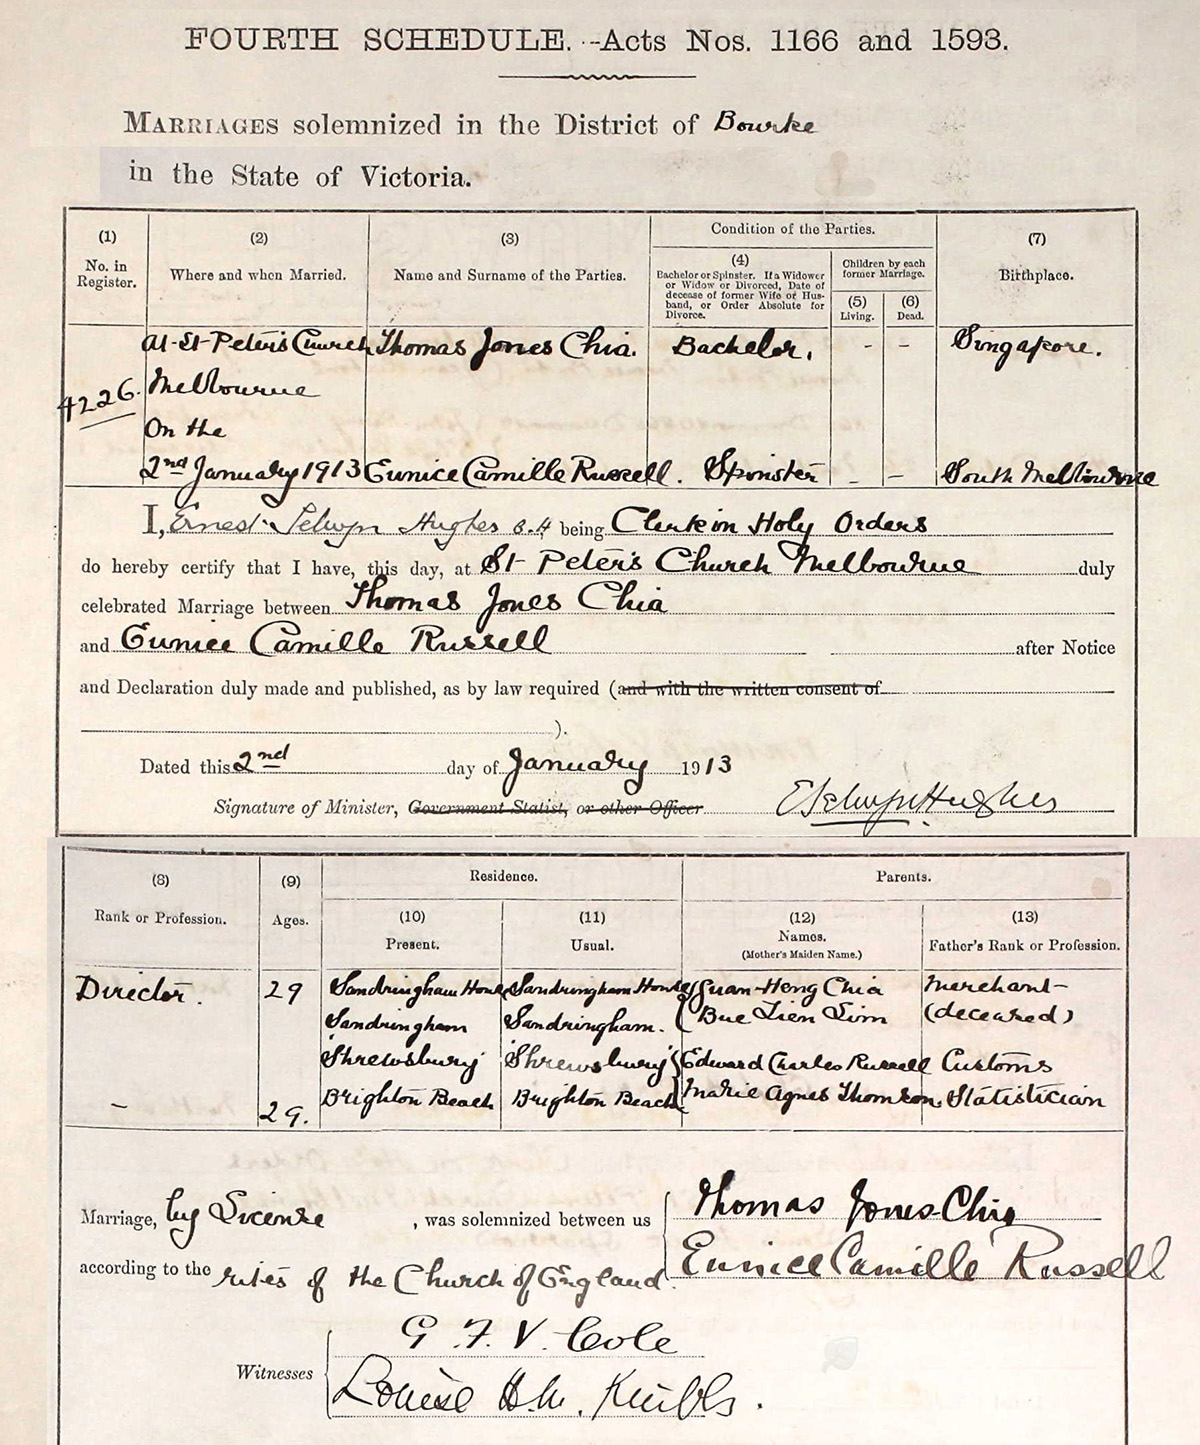 FOURTH SCHEDULE. --Acts Nos. 1166 and 1593.
MARRIAGES solemnized in the District of Bourke
in the State of Victoria.
(1)
No. in
Register.
(2)
Where and when Married.
(3)
Name and Surname of the Parties.
Condition of the Parties.
(4)
Bachelor or Spinster. If a Widower
or Widow or Divorced, Date of
decease of former Wife or Hus-
band, or Order Absolute for
Divorce.
Children by each
former Marriage.
(5)
Living.
(6)
Dead.
(7)
Birthplace.
4226.
At St Peter's Church
Melbourne
On the
2nd January 1913
Thomas Jones Chia.
Bachelor.
- -
Singapore.
Eunice Camille Russell.
Spinster
- -
South Melbourne
I, Ernest Selwyn Hughes being Clerk in Holy Orders
do hereby certify that I have, this day, at St Peter's Church Melbourne duly
celebrated Marriage between Thomas Jones Chia
and Eunice Camille Russell after Notice
and Declaration duly made and published, as by law required (and with the written consent of
).
Dated this 2nd day of January 1913
Signature of Minister, Government Statist, or other Officer ESelwynHughes
(8)
Rank or Profession.
(9)
Ages.
Residence.
(10)
Present.
(11)
Usual.
Parents.
(12)
Names.
(Mother's Maiden Name.)
(13)
Father's Rank or Profession.
Director.
29
Sandringham House
Sandringham
Sandringham House
Sandringham.
Guan Heng Chia
Bue Lien Lim
Merchant
(deceased)
-
29.
'Shrewsbury'
Brighton Beach
'Shrewsbury'
Brighton Beach
Edward Charles Russell
Marie Agnes Thomson.
Customs
Statistician
Marriage, by License , was solemnized between us
Thomas Jones Chia
according to the rites of the Church of England.
Eunice Camille Russell
Witnesses
G. F. V. Cole
Louise H.M. Knibbs.